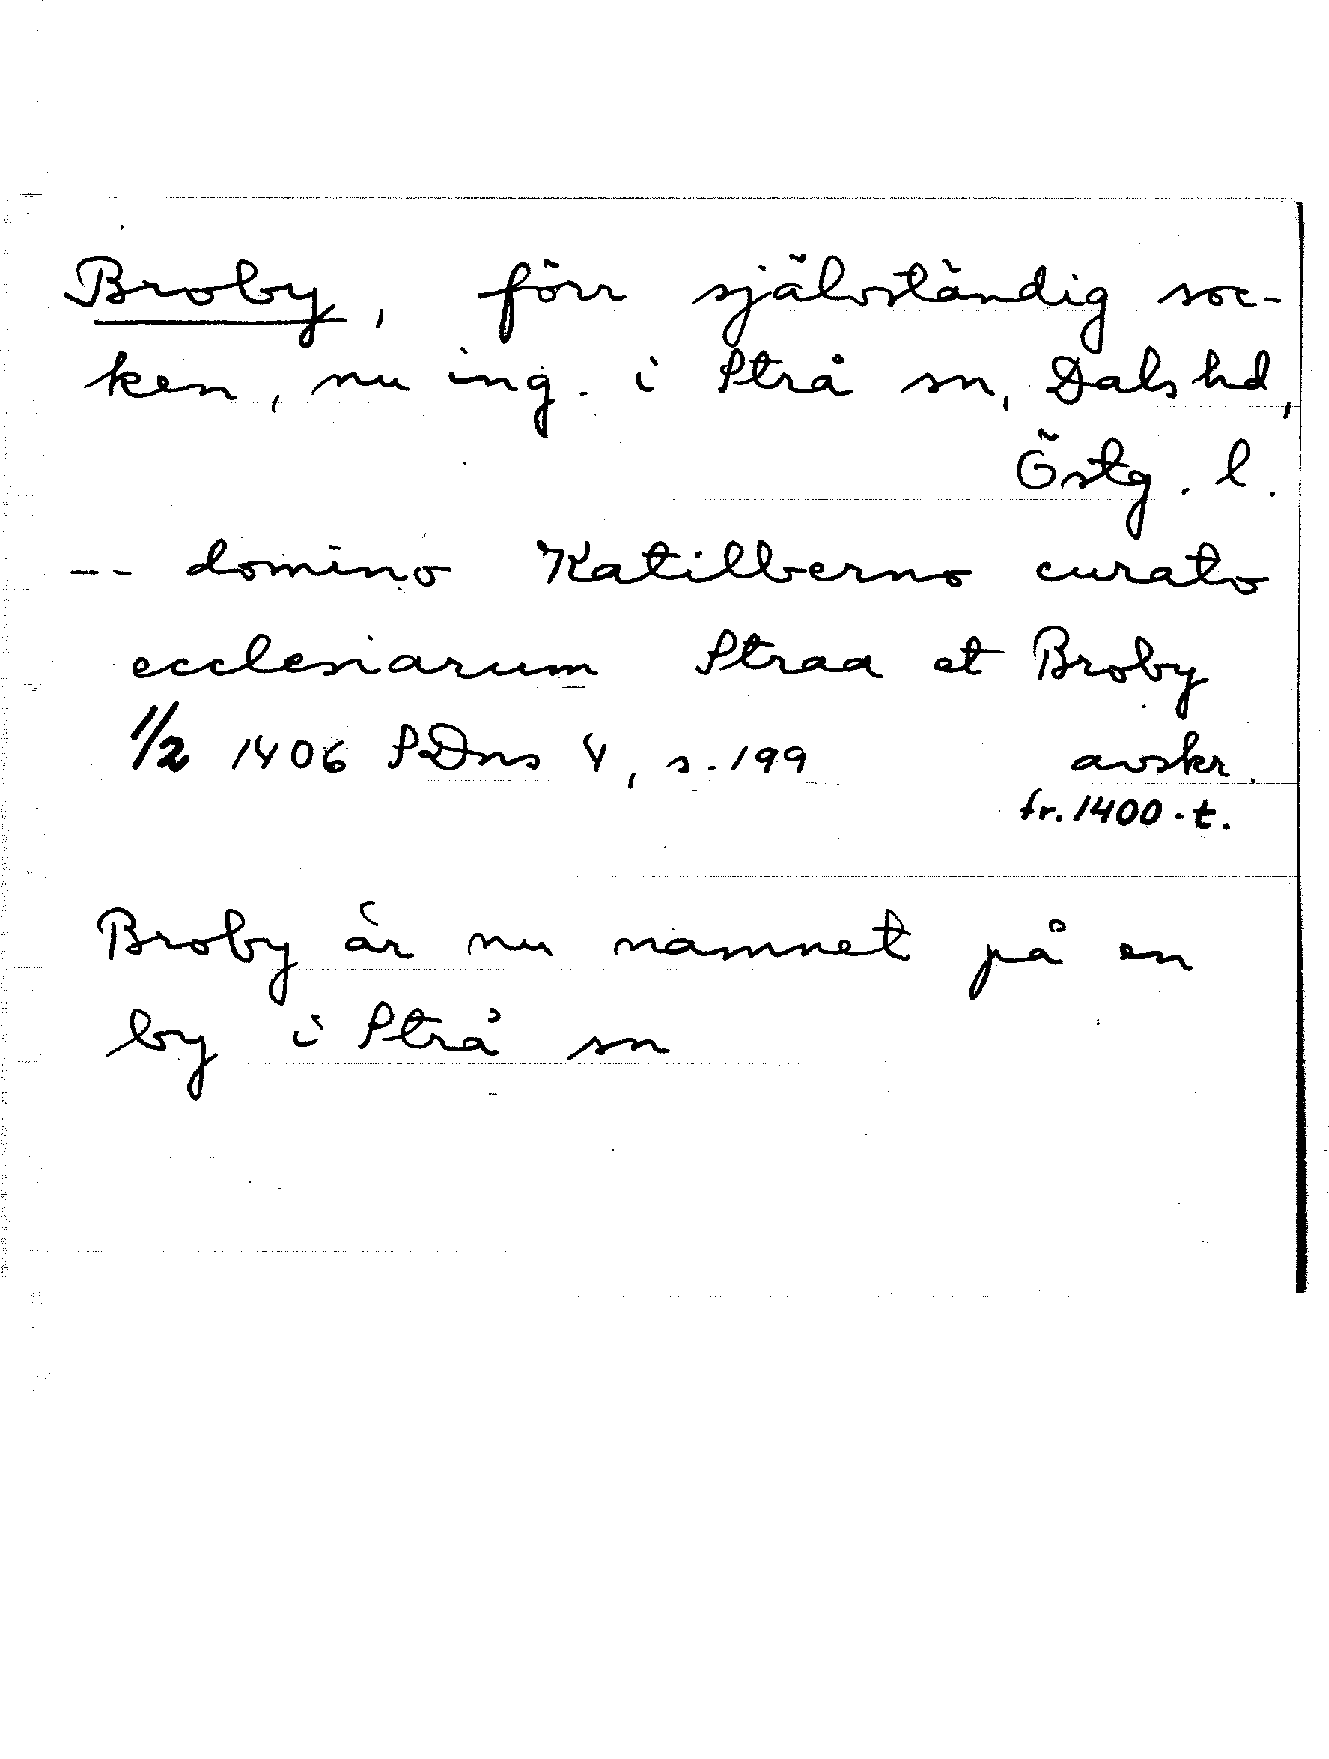 Broby, förr självständig soc-
ken, nu ing. i Strå sn, Dals hd,
Östg. l.
-- domino Katilberno curato
ecclesiarum Straa et Broby
1/2 1406 SDns 4, s. 199 avskr.
fr. 1400-t.
Broby är nu namnet på en
by i Strå sn